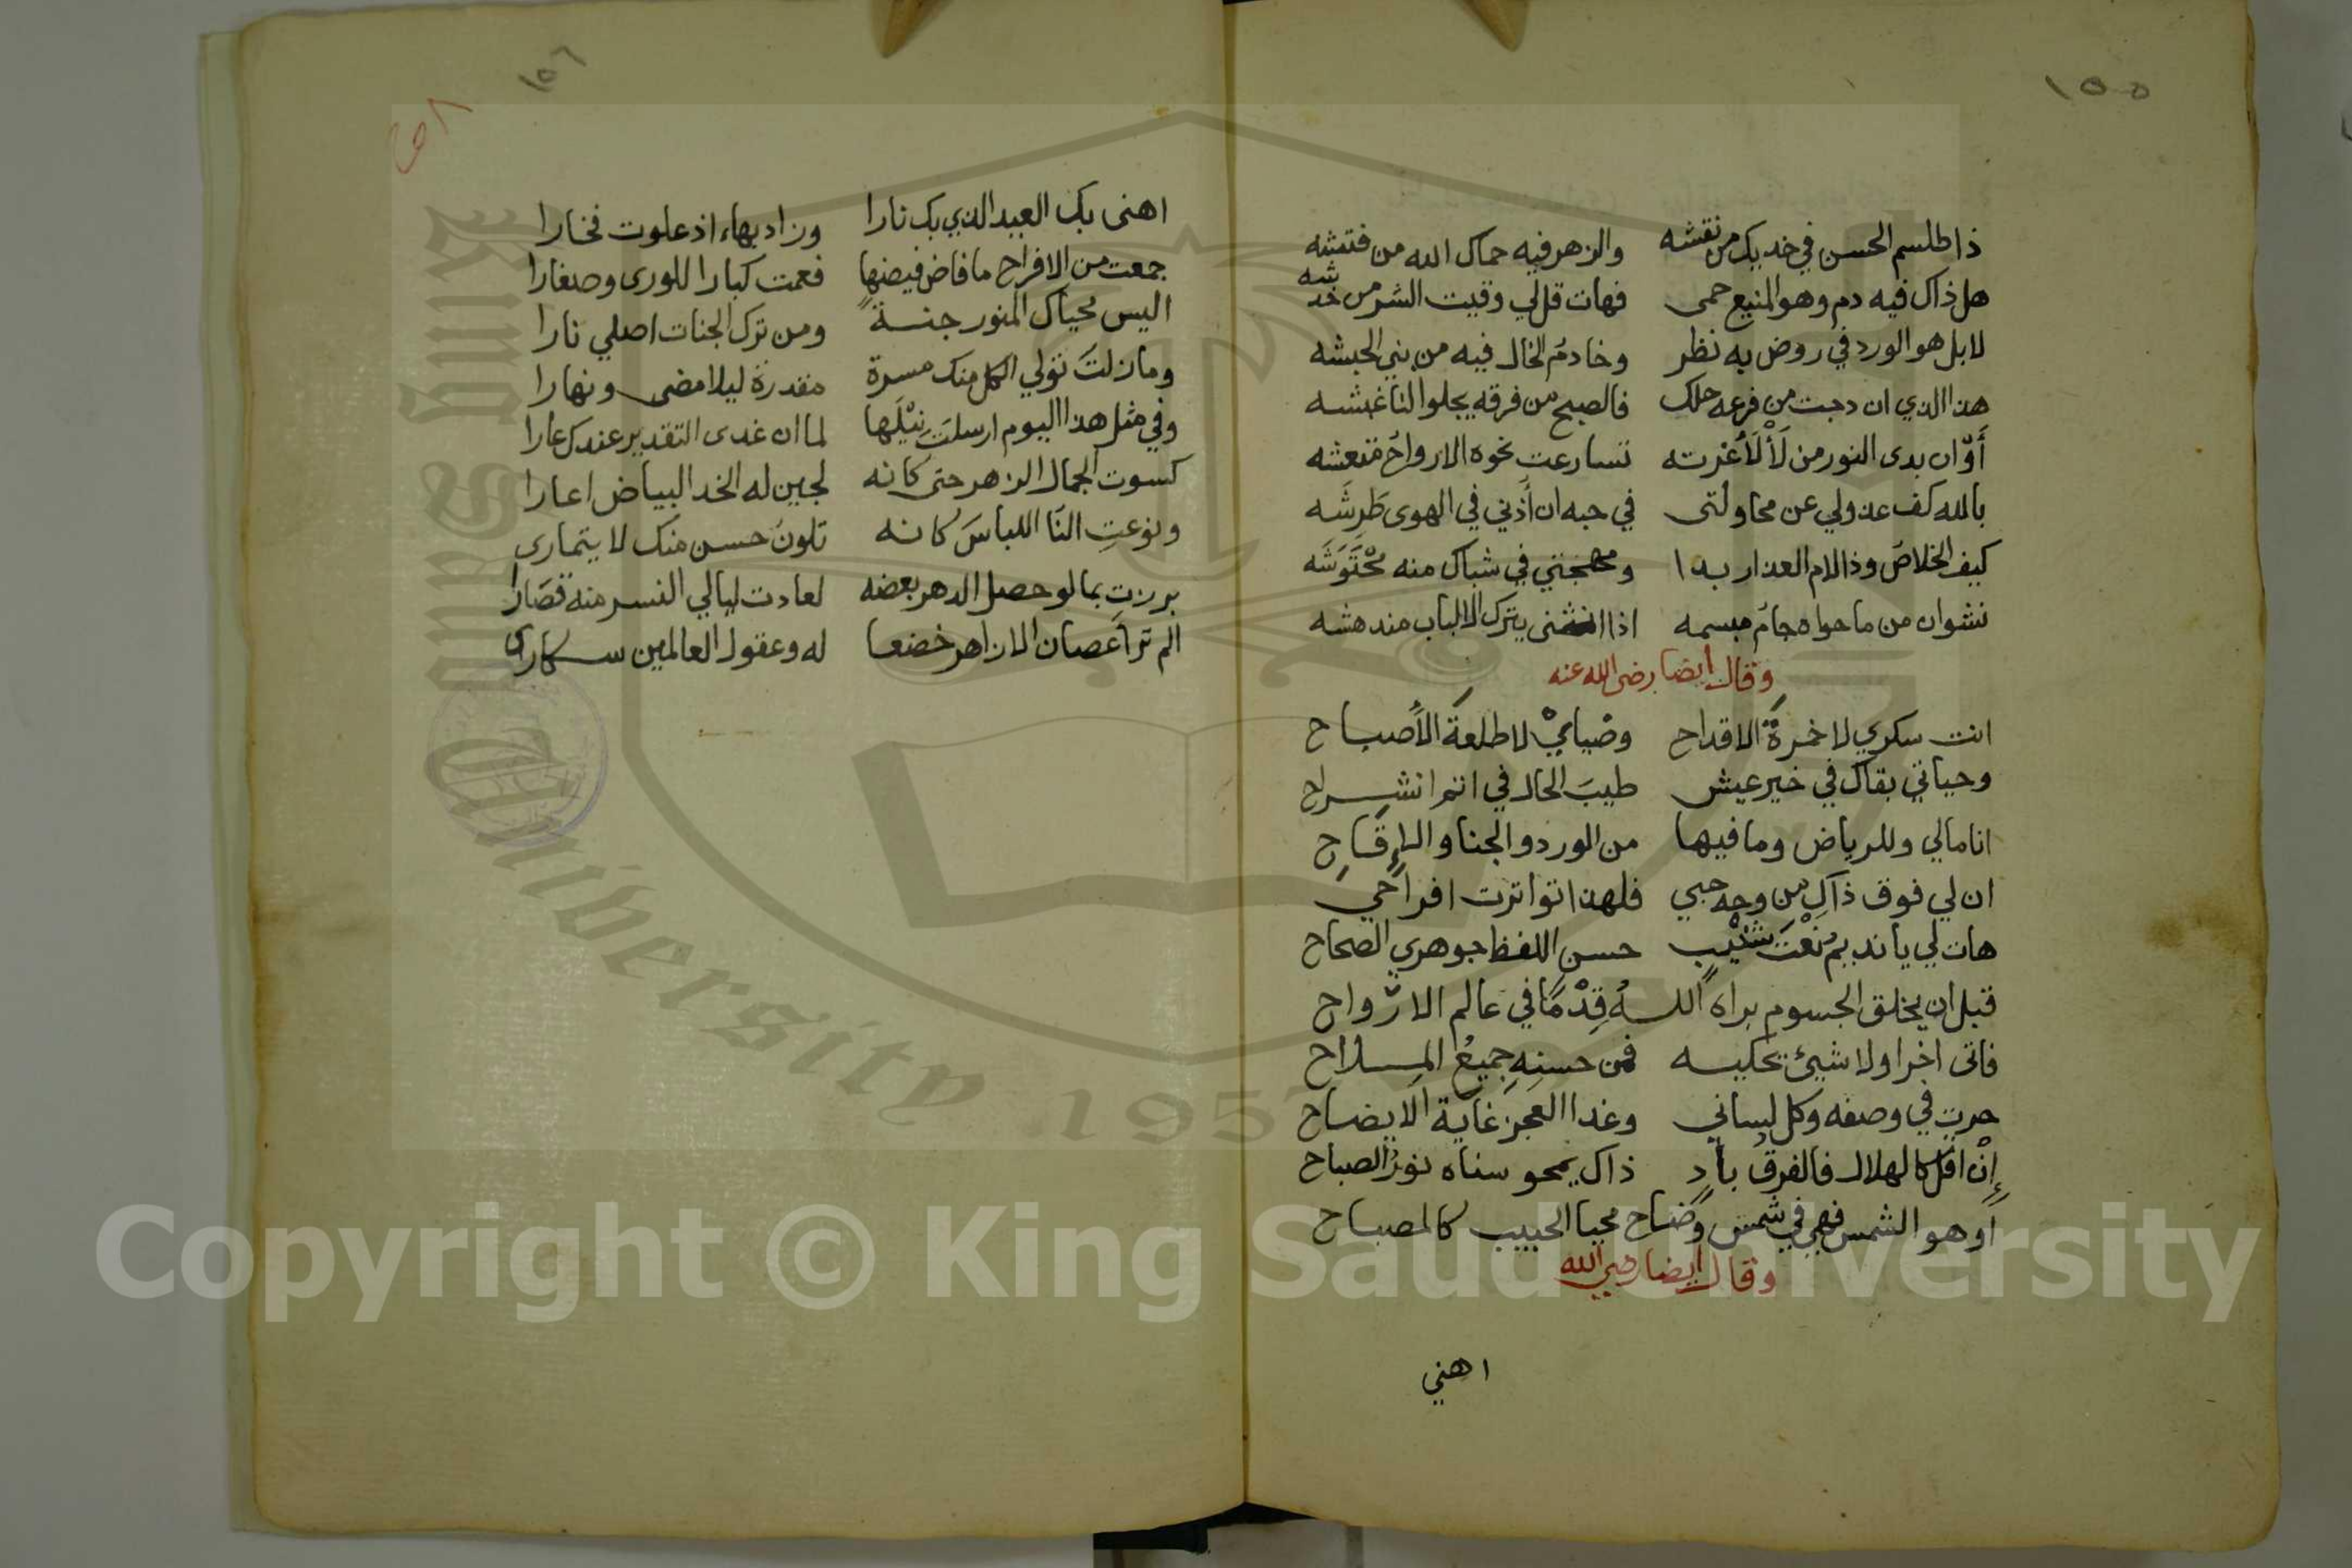 ١٥٥
ذا طلسم الحسن في خديك من نقشه والزهر فيه حماك الله من فتشه
هل ذاك فيه دم وهو المنيع حمى فهات قل لي وقيت الشر من خدشه
لا بل هو الورد في روض به نظر وخادم الخال فيه من بني الحبشه
هذا الذي ان دجت من فرعه حلك فالصبح من فرقه يجلوا لنا غبشه
أوّان بدى النور من لَأْلَأُغرته تسارعت نحوه الارواح منتعشه
بالله كف عذولي عن محاولتى في حبه ان أذني في الهوى طَرِشَه
كيف الخلاص وذا لام العذار بدا ومهجتي في شباك منه مْحْتَوَشَه
نشوان من ما حواه جام مبسمه اذا انثنى يترك الالباب مندهشه
وقال أيضا رضى الله عنه
انت سكري لا خمرةُ الاقداح وضيايْ لا طلعةَ الأصباح
وحياتي بقاك في خير عيش طيبَ الحال في اتم انشراح
انا مالي وللرياض وما فيها من الورد والجنا والإقَاحِ
ان لي فوق ذاك من وجه حبي فلهذا تواترت افراحي
هات لي يا نديم نعْتَ شنْيب حسن اللفظ جوهري الصحاح
قبل ان يخلق الجسوم براه اللـهُ قِدْمًا في عالم الارواح
فاتى اخرا ولا شيئ يحكيه فمن حسنهِ جميعُ الملاح
حرت في وصفه وكل لساني وغدا العجز غاية الايضاح
إنْ اقل كالهلال فالفرقُ بادٍ ذاك يمحو سناه نورُ الصباح
اَوهو الشمس فهي في شمس وضاح محيا الحبيب كالمصباح
وقال أيضا رضي الله
اهني
١٥٦
اهنى بك العيد الذي بك نارا وزاد بهاء اذ علوت فخارا
جمعت من الافراح ما فاض فيضها فعمت كبارا للورى وصغارا
اليس محياك المنور جنةً ومن ترك الجنات اصلي نارا
وما زلتَ تولي الكل منك مسرة مقدرة ليلا مضى ونهارا
وفي مثل هذا اليوم ارسلتَ نِيْلَها لما ان غدى التقدير عندك عارا
كسوت الجمال الزهر حتى كانه لجين له الخد البياض اعارا
ونوعتِ النَّا اللباسَ كانه تلونُ حسن منك لا يتمارى
برزتِ بما لو حصل الدهر بعضه لعادت ليالي النسر منه قصَارا
الم تر اغصان الازاهر خضعا له وعقول العالمين سكارى
Copyright © King Saud University
King Saud University
1957